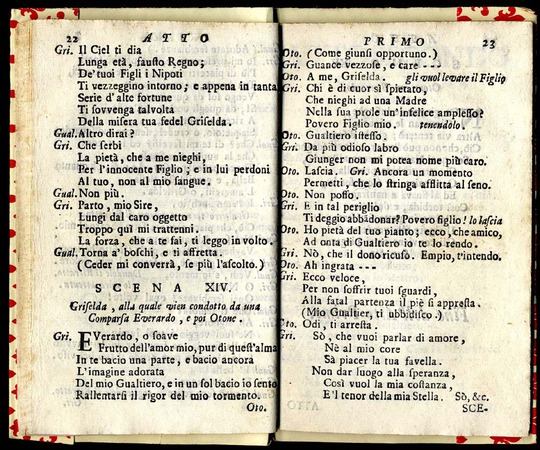 22 ATTO
Gri. Il Ciel ti dia
Lunga età, fausto Regno;
De' tuoi Figli i Nipoti
Ti vezzeggino intorno; e appena in tanta
Serie d'alte fortune
Ti sovvenga talvolta
Della misera tua fedel Griselda.
Gual. Altro dirai?
Gri. Che serbi
La pietà, che a me nieghi,
Per l'innocente Figlio; e in lui perdoni
Al tuo, non al mio sangue.
Gual. Non più.
Gri. Parto, mio Sire,
Lungi dal caro oggetto
Troppo quì mi trattenni.
La forza, che a te fai, ti leggo in volto.
Gual. Torna a' boschi, e ti affretta.
(Ceder mi converrà, se più l'ascolto.)
SCENA XIV.
Griselda, alla quale vien condotto da una
Comparsa Everardo, e poi Otone.
Gri. EVerardo, o soave
Frutto dell'amor mio, pur di quest'alma
In te bacio una parte, e bacio ancora
L'imagine adorata
Del mio Gualtiero, e in un sol bacio io sento
Rallentarsi il rigor del mio tormento.
Oto.
PRIMO 23
Oto. (Come giunsi opportuno.)
Gri. Guance vezzose, e care ---
Oto. A me, Griselda. gli vuol levare il Figlio
Gri. Chi è di cuor sì spietato,
Che nieghi ad una Madre
Nella sua prole un'infelice amplesso?
Povero Figlio mio. tenendolo.
Oto. Gualtiero istesso.
Gri. Da più odioso labro
Giunger non mi potea nome più caro.
Oto. Lascia. Gri. Ancora un momento
Permetti, che lo stringa afflitta al seno.
Oto. Non posso.
Gri. E in tal periglio
Ti deggio abbādonar? Povero figlio! lo lascia
Oto. Ho pietà del tuo pianto; ecco, che amico,
Ad onta di Gualtiero io te lo rendo.
Gri. Nò, che il dono ricusò. Empio, t'intendo.
Oto. Ah ingrata ---
Gri. Ecco veloce,
Per non soffrir tuoi sguardi,
Alla fatal partenza il piè si appresta.
(Mio Gualtier, ti ubbidisco.)
Oto. Odi, ti arresta.
Gri. Sò, che vuoi parlar di amore,
Nè al mio core
Sà piacer la tua favella.
Non dar luogo alla speranza,
Così vuol la mia costanza,
E'l tenor della mia Stella. Sò, &c.
SCE-